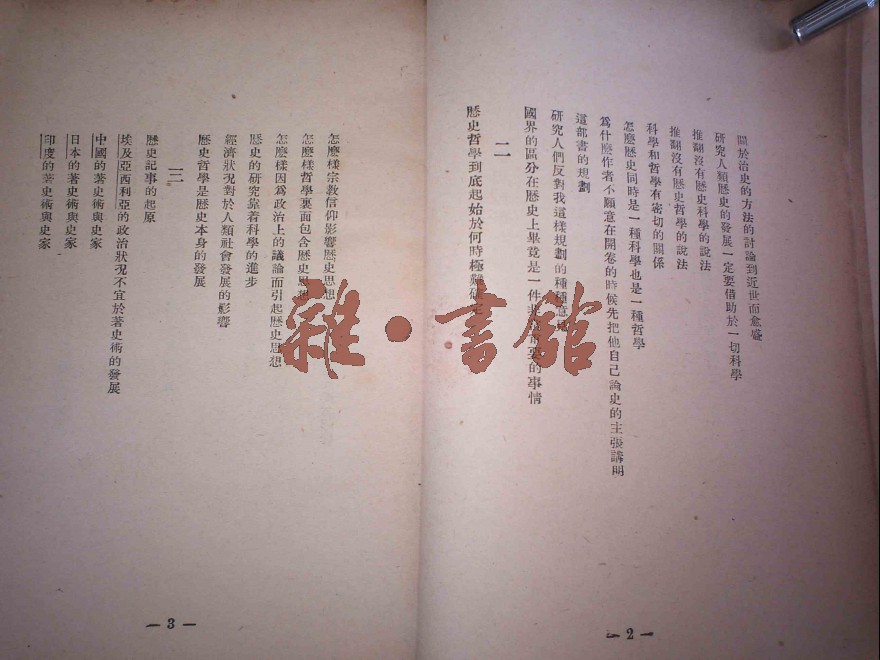 關於治史的方法的討論到近世而愈盛
研究人類歷史的發展一定要借助於一切科學
推翻沒有歷史科學的說法
推翻沒有歷史哲學的說法
科學和哲學有密切的關係
怎麼歷史同時是一種科學也是一種哲學
爲什麼作者不願意在開卷的時候先把他自己論史的主張講明
這部書的規劃
研究人們反對我這樣規劃的種種意見
國界的區分在歷史上畢竟是一件非常重要的事情
二
歷史哲學到底起始於何時極難確定
— 2 —
怎麼樣宗教信仰影響歷史思想
怎麼樣哲學裏面包含歷史思想
怎麼樣因爲政治上的議論而引起歷史思想
歷史的研究靠着科學的進步
經濟狀況對於人類社會發展的影響
歷史哲學是歷史本身的發展
三
歷史記事的起原
埃及亞西利亞的政治狀況不宜於著史術的發展
中國的著史術與史家
日本的著史術與史家
印度的著史術與史家
— 3 —
雜·書館